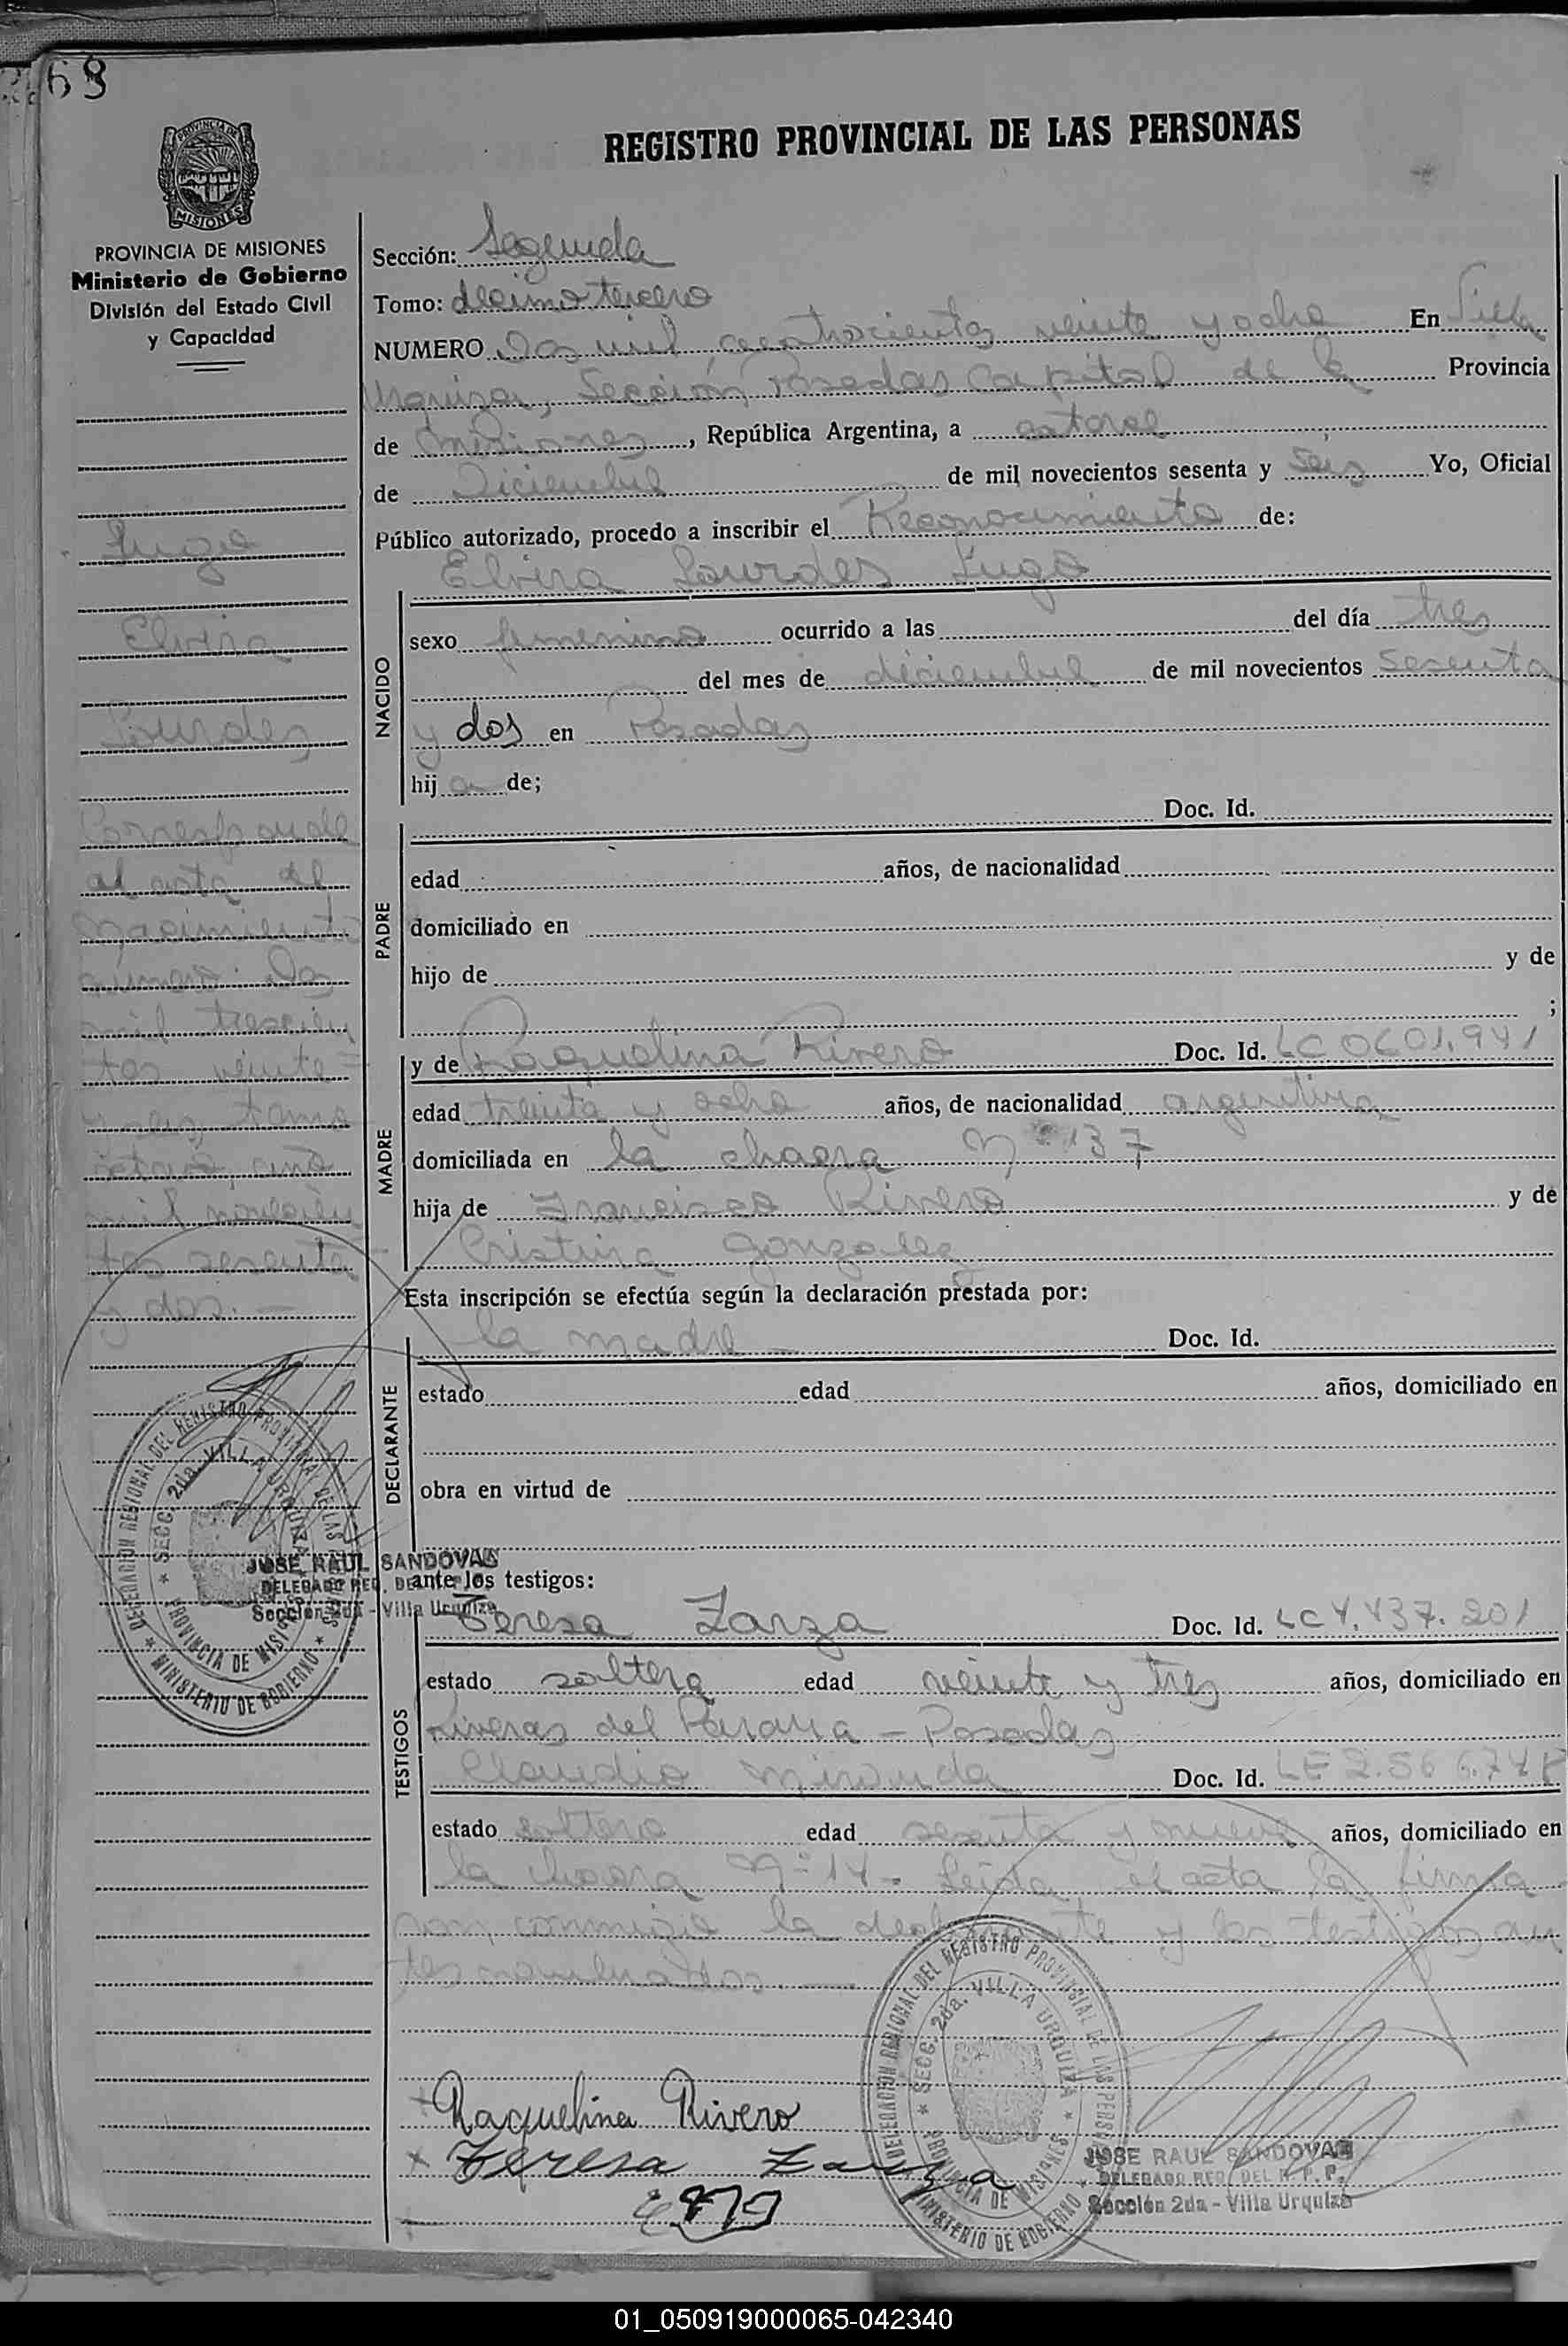 68
REGISTRO PROVINCIAL DE LAS PERSONAS
PROVINCIA DE
MISIONES
PROVINCIA DE MISIONES
Ministerio de Gobierno
División del Estado Civil
y Capacidad
Lugo
Elvira
Lourdes
Corresponde
al acta de
nacimiento
numero dos
mil trescien
tos veinte
y seis, tomo
año
mil novecien
tos sesenta
y dos.-
Sección: Segunda
Tomo: decimo tercero
NUMERO Dos mil cuatrocientos veinte y ocho En Villa
Urquiza, Sección Posadas Capital de la Provincia
de Misiones, República Argentina, a catorce
de Diciembre de mil novecientos sesenta y seis Yo, Oficial
Público autorizado, procedo a inscribir el Reconocimiento de:
Elvira Lourdes Lugo
NACIDO
sexo femenino ocurrido a las del día tres
del mes de diciembre de mil novecientos sesenta
y dos en Posadas
hija de;
Doc. Id.
PADRE
edad años, de nacionalidad
domiciliado en
hijo de y de
;
MADRE
y de Raquelina Rivero Doc. Id. LC 0601.941
edad treinta y ocho años, de nacionalidad argentina
domiciliada en la chacra Nº 137
hija de Francisco Rivero y de
Cristina Gonzalez
Esta inscripción se efectúa según la declaración prestada por:
la madre - Doc. Id.
DECLARANTE
estado edad años, domiciliado en
obra en virtud de
ante los testigos:
TESTIGOS
Teresa Zarza Doc. Id. LC 4.437.201
estado soltera edad veinte y tres años, domiciliado en
Riveras del Parana - Posadas
Claudio Miranda Doc. Id. LE 2.566.74
estado soltero edad sesenta y nueve años, domiciliado en
la chacra Nº 14 - Leida el acta la firma
con conmigo la declarante y los testigos an
tes nombrados. -
DELEGACION REGIONAL DEL REGISTRO PROVINCIAL DE LAS PERSONAS
* SECC. 2da. VILLA URQUIZA *
PROVINCIA DE MISIONES
* MINISTERIO DE GOBIERNO *
JOSE RAUL SANDOVAL
DELEGADO REG. DEL
Sección 2da - Villa Urquiza
Raquelina Rivero
Teresa Zarza
DELEGACION REGIONAL DEL REGISTRO PROVINCIAL DE LAS PERSONAS
* SECC. 2da. VILLA URQUIZA *
PROVINCIA DE MISIONES
MINISTERIO DE GOBIERNO
JOSE RAUL SANDOVAL
DELEGADO REG. DEL R. P. P.
Sección 2da - Villa Urquiza
01_050919000065-042340